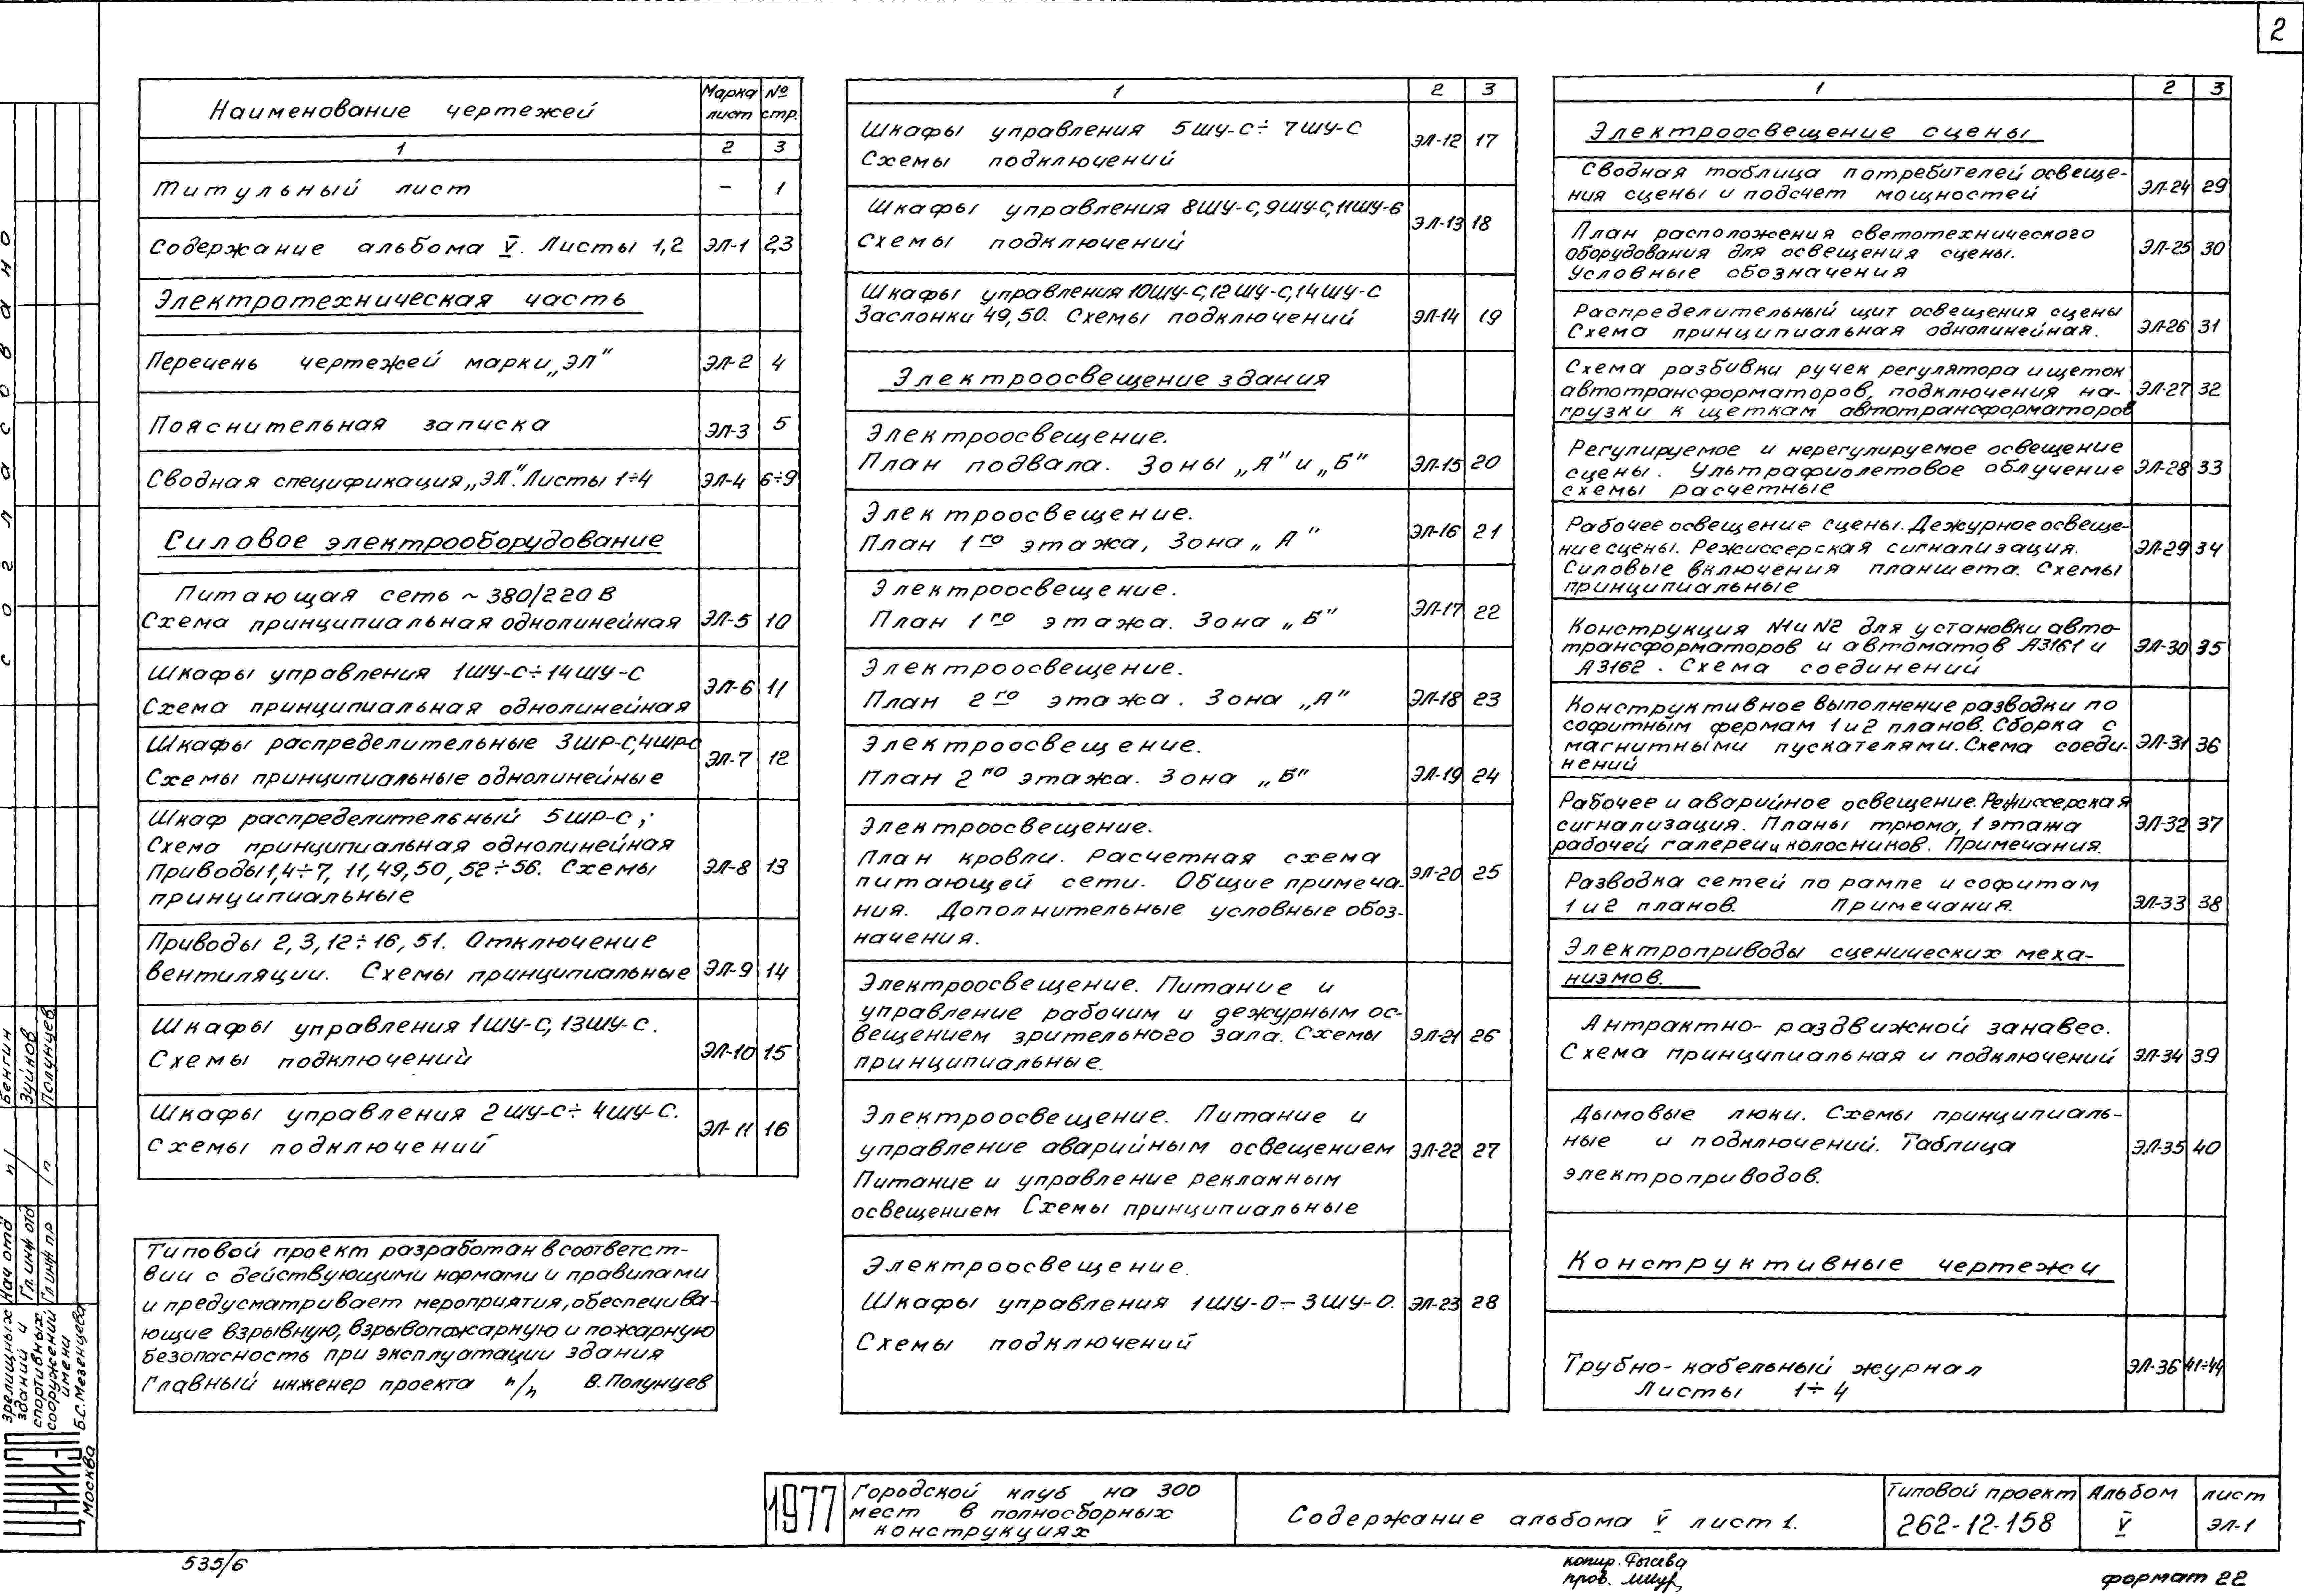 2
Наименование чертежей
Марка лист
№ стр.
1 2 3
Титульный лист – 1
Содержание альбома V. Листы 1,2 ЭЛ-1 2,3
Электротехническая часть
Перечень чертежей марки „ЭЛ" ЭЛ-2 4
Пояснительная записка ЭЛ-3 5
Сводная спецификация „ЭЛ". Листы 1÷4 ЭЛ-4 6÷9
Силовое электрооборудование
Питающая сеть ~ 380/220 В
Схема принципиальная однолинейная ЭЛ-5 10
Шкафы управления 1ШУ-С÷14ШУ-С
Схема принципиальная однолинейная ЭЛ-6 11
Шкафы распределительные 3ШР-С,4ШР-С
Схемы принципиальные однолинейные ЭЛ-7 12
Шкаф распределительный 5ШР-С;
Схема принципиальная однолинейная
Приводы 1,4÷7, 11,49,50,52÷56. Схемы
принципиальные ЭЛ-8 13
Приводы 2,3,12÷16,51. Отключение
вентиляции. Схемы принципиальные ЭЛ-9 14
Шкафы управления 1ШУ-С, 13ШУ-С.
Схемы подключений ЭЛ-10 15
Шкафы управления 2ШУ-С÷4ШУ-С.
Схемы подключений ЭЛ-11 16
Типовой проект разработан в соответст-
вии с действующими нормами и правилами
и предусматривает мероприятия, обеспечива-
ющие взрывную, взрывопожарную и пожарную
безопасность при эксплуатации здания
Главный инженер проекта п/п В.Полунцев
1 2 3
Шкафы управления 5ШУ-С÷7ШУ-С
Схемы подключений ЭЛ-12 17
Шкафы управления 8ШУ-С,9ШУ-С,11ШУ-Б
Схемы подключений ЭЛ-13 18
Шкафы управления 10ШУ-С,12ШУ-С,14ШУ-С
Заслонки 49,50. Схемы подключений ЭЛ-14 19
Электроосвещение здания
Электроосвещение.
План подвала. Зоны „А" и „Б" ЭЛ-15 20
Электроосвещение.
План 1го этажа, Зона „А" ЭЛ-16 21
Электроосвещение.
План 1го этажа. Зона „Б" ЭЛ-17 22
Электроосвещение.
План 2го этажа. Зона „А" ЭЛ-18 23
Электроосвещение.
План 2го этажа. Зона „Б" ЭЛ-19 24
Электроосвещение.
План кровли. Расчетная схема
питающей сети. Общие примеча-
ния. Дополнительные условные обоз-
начения. ЭЛ-20 25
Электроосвещение. Питание и
управление рабочим и дежурным ос-
вещением зрительного зала. Схемы
принципиальные. ЭЛ-21 26
Электроосвещение. Питание и
управление аварийным освещением
Питание и управление рекламным
освещением Схемы принципиальные ЭЛ-22 27
Электроосвещение.
Шкафы управления 1ШУ-О÷3ШУ-О.
Схемы подключений ЭЛ-23 28
1 2 3
Электроосвещение сцены
Сводная таблица потребителей освеще-
ния сцены и подсчет мощностей ЭЛ-24 29
План расположения светотехнического
оборудования для освещения сцены.
Условные обозначения ЭЛ-25 30
Распределительный щит освещения сцены
Схема принципиальная однолинейная. ЭЛ-26 31
Схема разбивки ручек регулятора и щеток
автотрансформаторов, подключения на-
грузки к щеткам автотрансформаторов ЭЛ-27 32
Регулируемое и нерегулируемое освещение
сцены. Ультрафиолетовое облучение
схемы расчетные ЭЛ-28 33
Рабочее освещение сцены. Дежурное освеще-
ние сцены. Режиссерская сигнализация.
Силовые включения планшета. Схемы
принципиальные ЭЛ-29 34
Конструкция №1 и №2 для установки авто-
трансформаторов и автоматов А3161 и
А3162. Схема соединений ЭЛ-30 35
Конструктивное выполнение разводки по
софитным фермам 1 и 2 планов. Сборка с
магнитными пускателями. Схема соеди-
нений ЭЛ-31 36
Рабочее и аварийное освещение. Режиссерская
сигнализация. Планы трюма, 1 этажа
рабочей галереи и колосников. Примечания. ЭЛ-32 37
Разводка сетей по рампе и софитам
1 и 2 планов. Примечания. ЭЛ-33 38
Электроприводы сценических меха-
низмов.
Антрактно-раздвижной занавес.
Схема принципиальная и подключений ЭЛ-34 39
Дымовые люки. Схемы принципиаль-
ные и подключений. Таблица
электроприводов. ЭЛ-35 40
Конструктивные чертежи
Трубно-кабельный журнал
Листы 1÷4 ЭЛ-36 41÷44
1977
Городской клуб на 300
мест в полносборных
конструкциях
Содержание альбома V лист 1.
Типовой проект
262-12-158
Альбом
V
лист
ЭЛ-1
535/6
копир.
пров.
формат 22
Согласовано
Нач отд п/ Бенгин
Гл. инж отд / Зуйков
Гл инж пр /п Полунцев
ЦНИИЭП
зрелищных
зданий и
спортивных
сооружений
имени
Б.С.Мезенцева
Москва